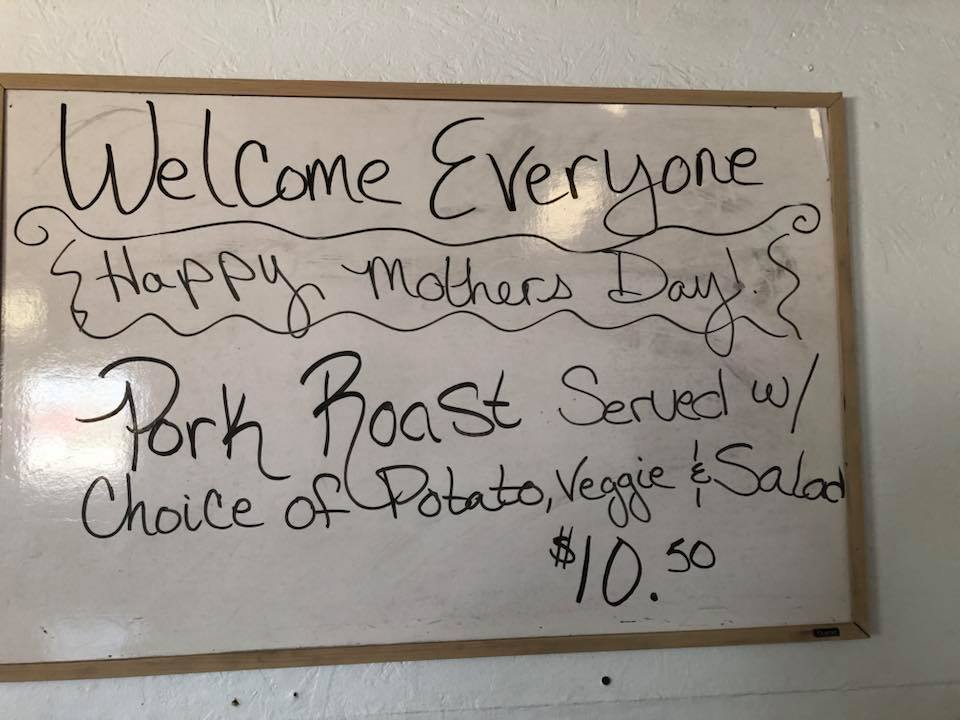 Welcome Everyone
Happy Mothers Day!
Pork Roast Served w/
Choice of Potato, Veggie & Salad
$10.50